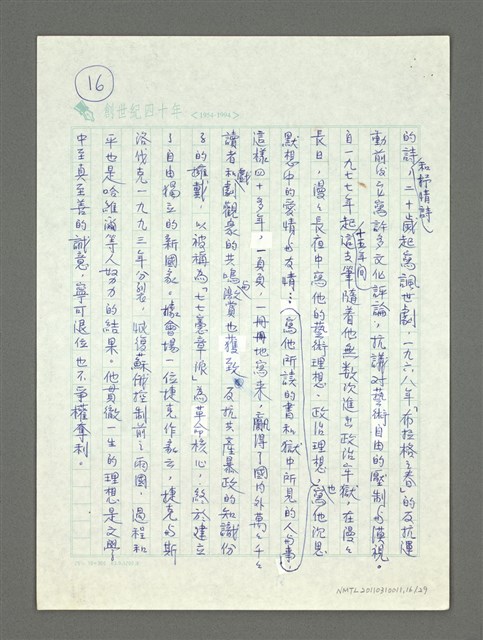 16
創世紀四十年 <1954-1994>
的詩和抒情詩，二十歲起寫諷世劇，一九六八年「布拉格之春」的反抗運
動前後立寫許多文化評論，抗議對藝術自由的壓制與漠視。
自一九七七年起十五年間這支筆隨著他無數次進出政治牢獄。在漫漫
長日，漫漫長夜中寫他的藝術理想、政治理想，也寫他沉思
默想中的愛情與友情…（寫他所讀的書和獄中所見的人與事。）
這樣四十多年，一頁頁，一冊冊地寫來，贏得了國內外萬萬千千
讀者和戲劇觀眾的共鳴與激賞也獲致及抗共產暴政的知識份
子的擁戴，以被稱為「七七憲章派」為革命核心，終於建立
了自由獨立的新國家。據會場一位捷克作家云，捷克與斯
洛伐克一九九三年分裂，恢復蘇俄控制前之兩國，過程和
平也是哈維爾等人努力的結果。他貫徹一生的理想是文學
中至真至善的誠意。寧可退位也不爭權奪利。
NMTL20110310011,16/29